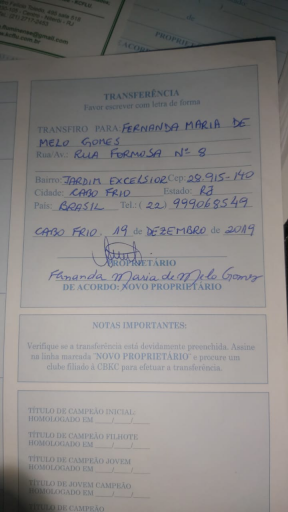 TRANSFERÊNCIA
Favor escrever com letra de forma
TRANSFIRO PARA: FERNANDA MARIA DE
MELO GOMES
Rua/Av.: RUA FORMOSA Nº 8
Bairro: JARDIM EXCELSIOR Cep: 28-915-140
Cidade: CABO FRIO Estado: RJ
País: BRASIL Tel.: (22) 999068549
CABO FRIO, 19 de DEZEMBRO de 2019
PROPRIETÁRIO
Fernanda Maria de Melo Gomes
DE ACORDO: NOVO PROPRIETÁRIO
NOTAS IMPORTANTES:
Verifique se a transferência está devidamente preenchida. Assine
na linha marcada "NOVO PROPRIETÁRIO" e procure um
clube filiado à CBKC para efetuar a transferência.
TÍTULO DE CAMPEÃO INICIAL:
HOMOLOGADO EM ____/____/____
TÍTULO DE CAMPEÃO FILHOTE
HOMOLOGADO EM ____/____/____
TÍTULO DE CAMPEÃO JOVEM
HOMOLOGADO EM ____/____/____
TÍTULO DE JOVEM CAMPEÃO
HOMOLOGADO EM ____/____/____
TÍTULO DE CAMPEÃO